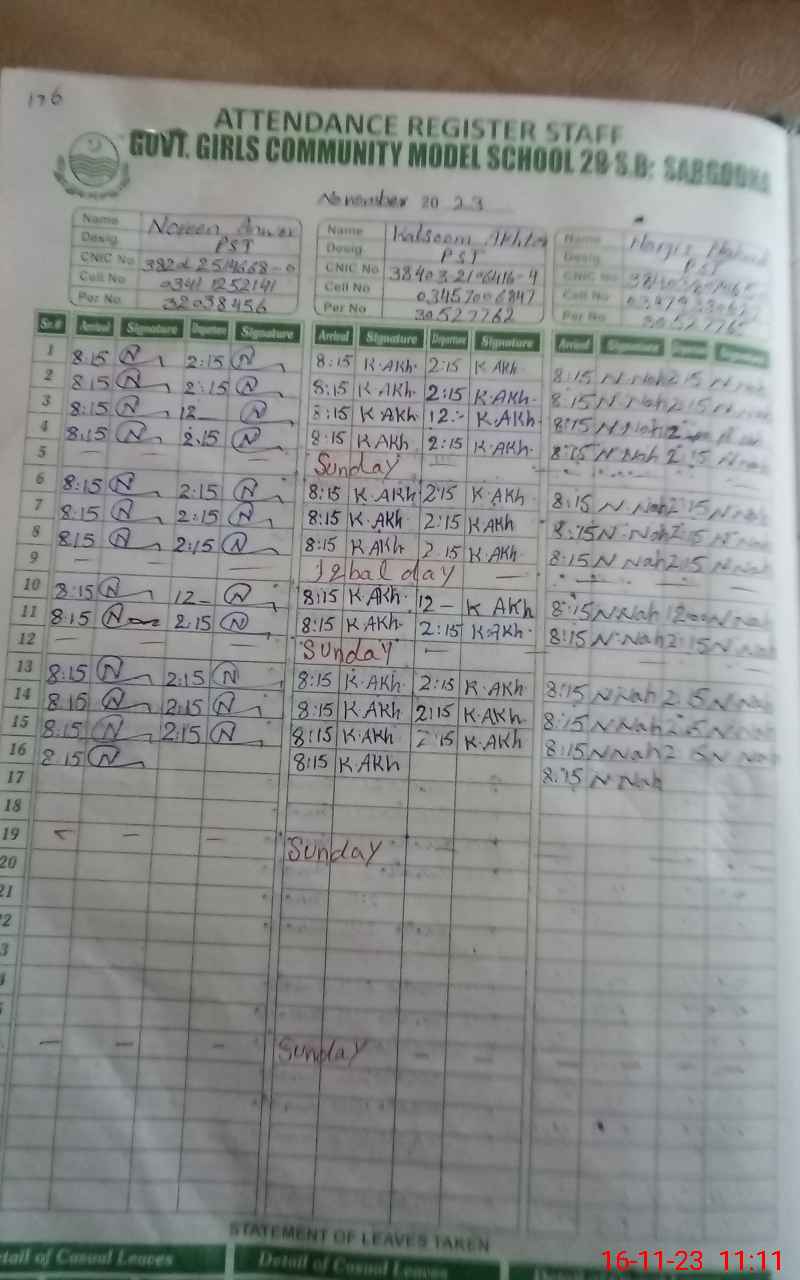 176
ATTENDANCE REGISTER STAFF
GOVT. GIRLS COMMUNITY MODEL SCHOOL 28 S.B: SARGODHA
November 2023
Name Noreen Anwer Name Kalsoom Akhtar Name Nargis
Desig PST Desig PST Desig PST
CNIC No CNIC No 38403 2106416-4 CNIC No
Cell No 0341 1252141 Cell No 03457006847 Cell No
Per No 32038456 Per No 30527762 Per No
Sr.# Arrival Signature Departure Signature Arrival Signature Departure Signature Arrival Signature Departure Signature
1 8:15 N 2:15 N 8:15 K.AKh. 2:15 K AKh. 8:15 N Nah 2:15 N Nah
2 8:15 N 2:15 N 8:15 K AKh 2:15 K.AKh. 8:15 N Nah 2:15 N Nah
3 8:15 N 12 N 8:15 K AKh 12 K.AKh. 8:15 N Nah
4 8:15 N 2:15 N 8:15 K AKh 2:15 K.AKh. 8:15 N Nah 2:15 N Nah
5 — — — — Sunday
6 8:15 N 2:15 N 8:15 K AKh 2:15 K AKh. 8:15 N Nah 2:15 N Nah
7 8:15 N 2:15 N 8:15 K.AKh. 2:15 K AKh 8:15 N Nah 2:15 N Nah
8 8:15 N 2:15 N 8:15 K AKh 2:15 K AKh. 8:15 N Nah 2:15 N Nah
9 — — — — Iqbal day —
10 8:15 N 12 N 8:15 K.AKh. 12 K AKh 8:15 N Nah 1200 N Nah
11 8:15 N 2:15 N 8:15 K.AKh. 2:15 K.AKh. 8:15 N Nah 2:15 N Nah
12 — — — — Sunday —
13 8:15 N 2:15 N 8:15 K.AKh. 2:15 K.AKh. 8:15 N Nah 2:15 N Nah
14 8:15 N 2:15 N 8:15 K AKh 2:15 K.AKh. 8:15 N Nah 2:15 N Nah
15 8:15 N 2:15 N 8:15 K.AKh 2:15 K AKh 8:15 N Nah 2:15 N Nah
16 8:15 N 8:15 K.AKh 8:15 N Nah
17
18
19 — — — Sunday
20
21
22
— — — Sunday — —
STATEMENT OF LEAVES TAKEN
Detail of Casual Leaves Detail of Casual Leaves
16-11-23 11:11